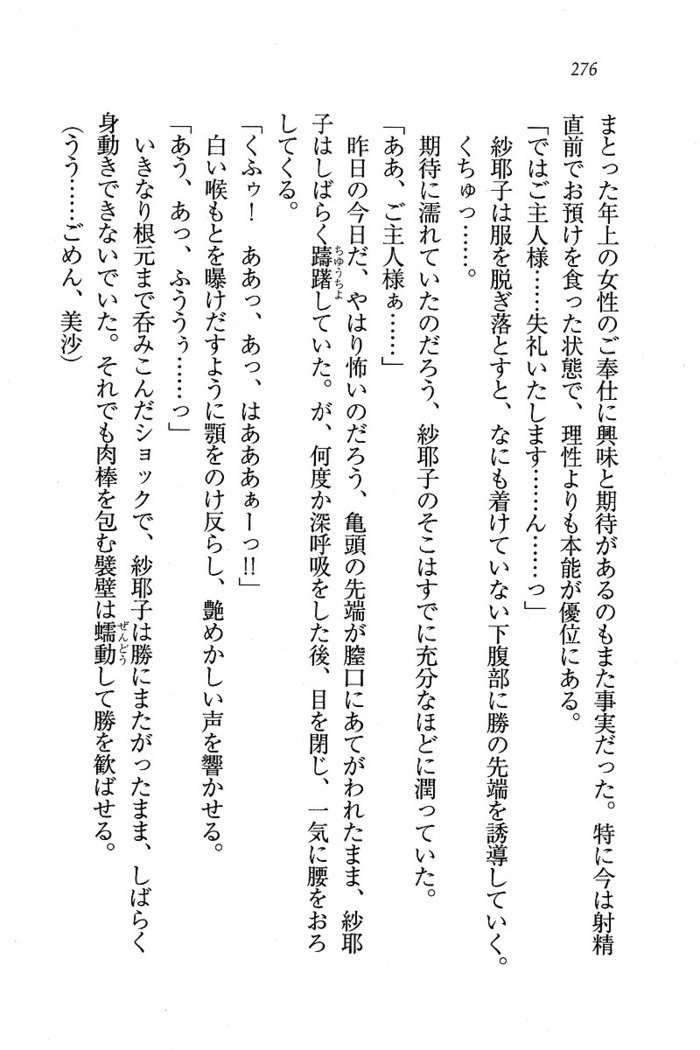 276
まとった年上の女性のご奉仕に興味と期待があるのもまた事実だった。特に今は射精
直前でお預けを食った状態で、理性よりも本能が優位にある。
「ではご主人様……失礼いたします……ん……っ」
紗耶子は服を脱ぎ落とすと、なにも着けていない下腹部に勝の先端を誘導していく。
くちゅっ……。
期待に濡れていたのだろう、紗耶子のそこはすでに充分なほどに潤っていた。
「ああ、ご主人様ぁ……」
昨日の今日だ、やはり怖いのだろう、亀頭の先端が膣口にあてがわれたまま、紗耶
子はしばらく躊躇していた。が、何度か深呼吸をした後、目を閉じ、一気に腰をおろ
ちゅうちょ
してくる。
「くふゥ！　ああっ、あっ、はあああぁーっ!!」
白い喉もとを曝けだすように顎をのけ反らし、艶めかしい声を響かせる。
「あう、あっ、ふううぅ……っ」
いきなり根元まで呑みこんだショックで、紗耶子は勝にまたがったまま、しばらく
身動きできないでいた。それでも肉棒を包む襞壁は蠕動して勝を歓ばせる。
ぜんどう
(うう……ごめん、美沙)